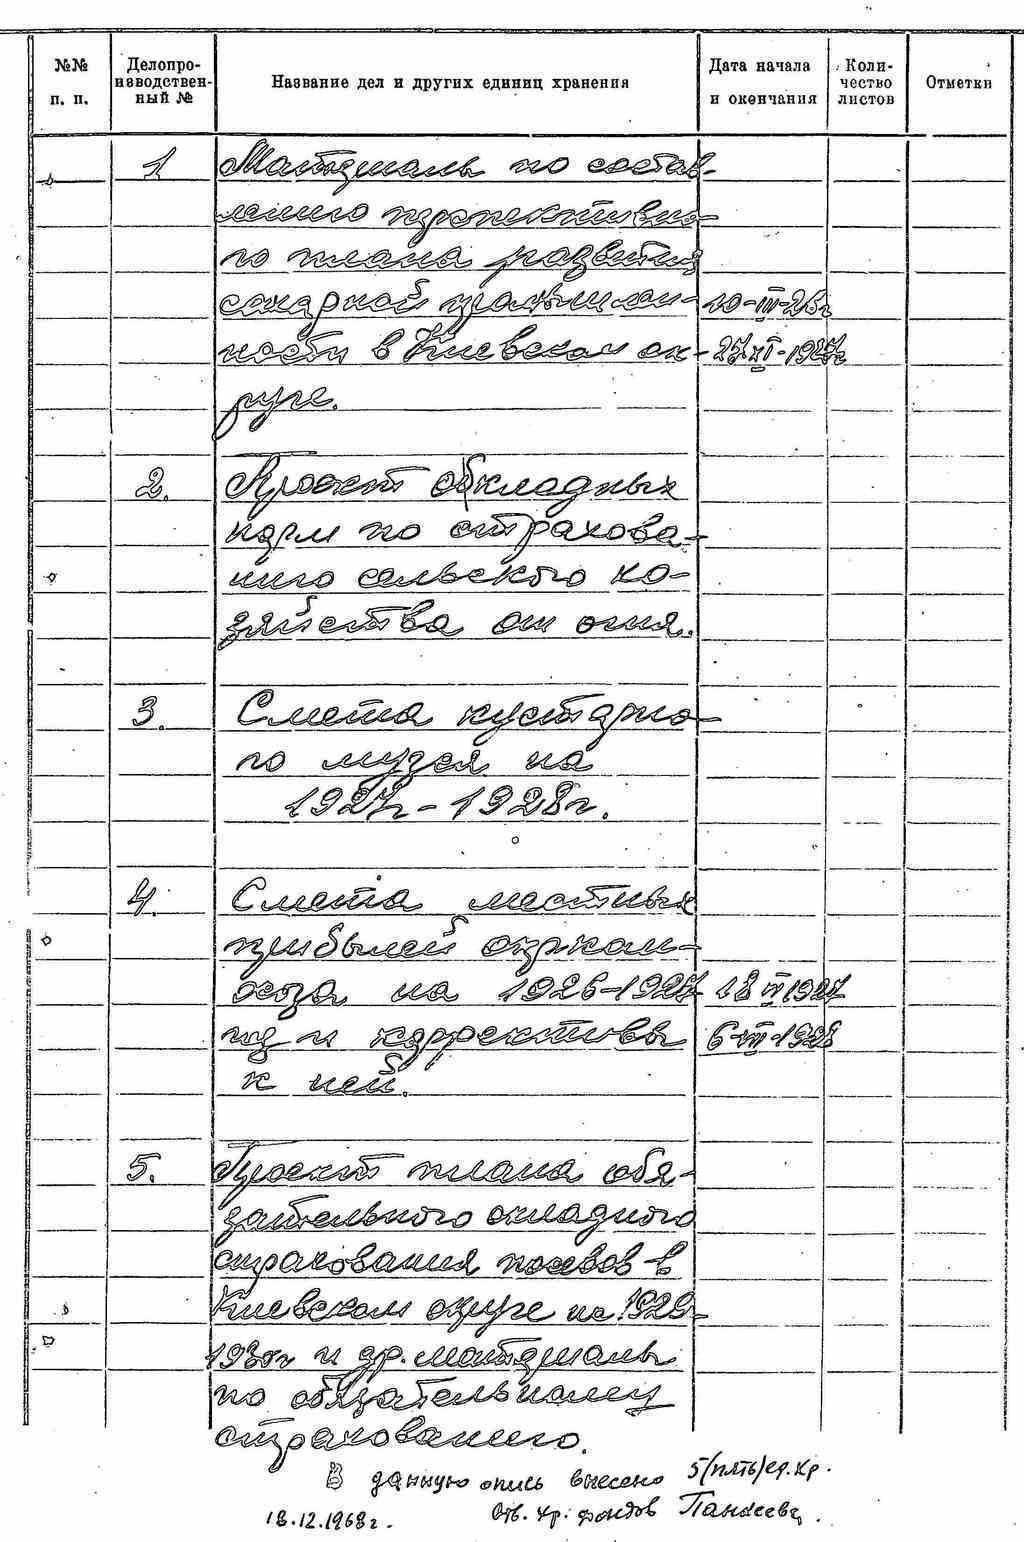 №№ п. п.
Делопро-
изводствен-
ный №
Название дел и других единиц хранения
Дата начала
и окончания
Коли-
чество
листов
Отметки
1 Материалы по состав-
лению перспективно-
го плана развития
сахарной промышлен- 10-III-26г
ности в Киевском ок- 27 XI-1927г
руге.
2. Проект обкладных
норм по страхова-
нию сельского хо-
зяйства от огня.
3. Смета кустарно-
го музея на
1927г-1928г.
4. Смета местных
прибылей окрком-
хоза на 1926-1927 18 IV 1927
год и коррективы 6-III-1928
к ней.
5. Проект плана обя-
зательного окладного
страхования посевов в
Киевском округе на 1929-
1930г и др. материалы
по обязательному
страхованию.
В данную опись внесено 5(пять)ед.хр.
18.12.1968г. Отв. хр. фондов